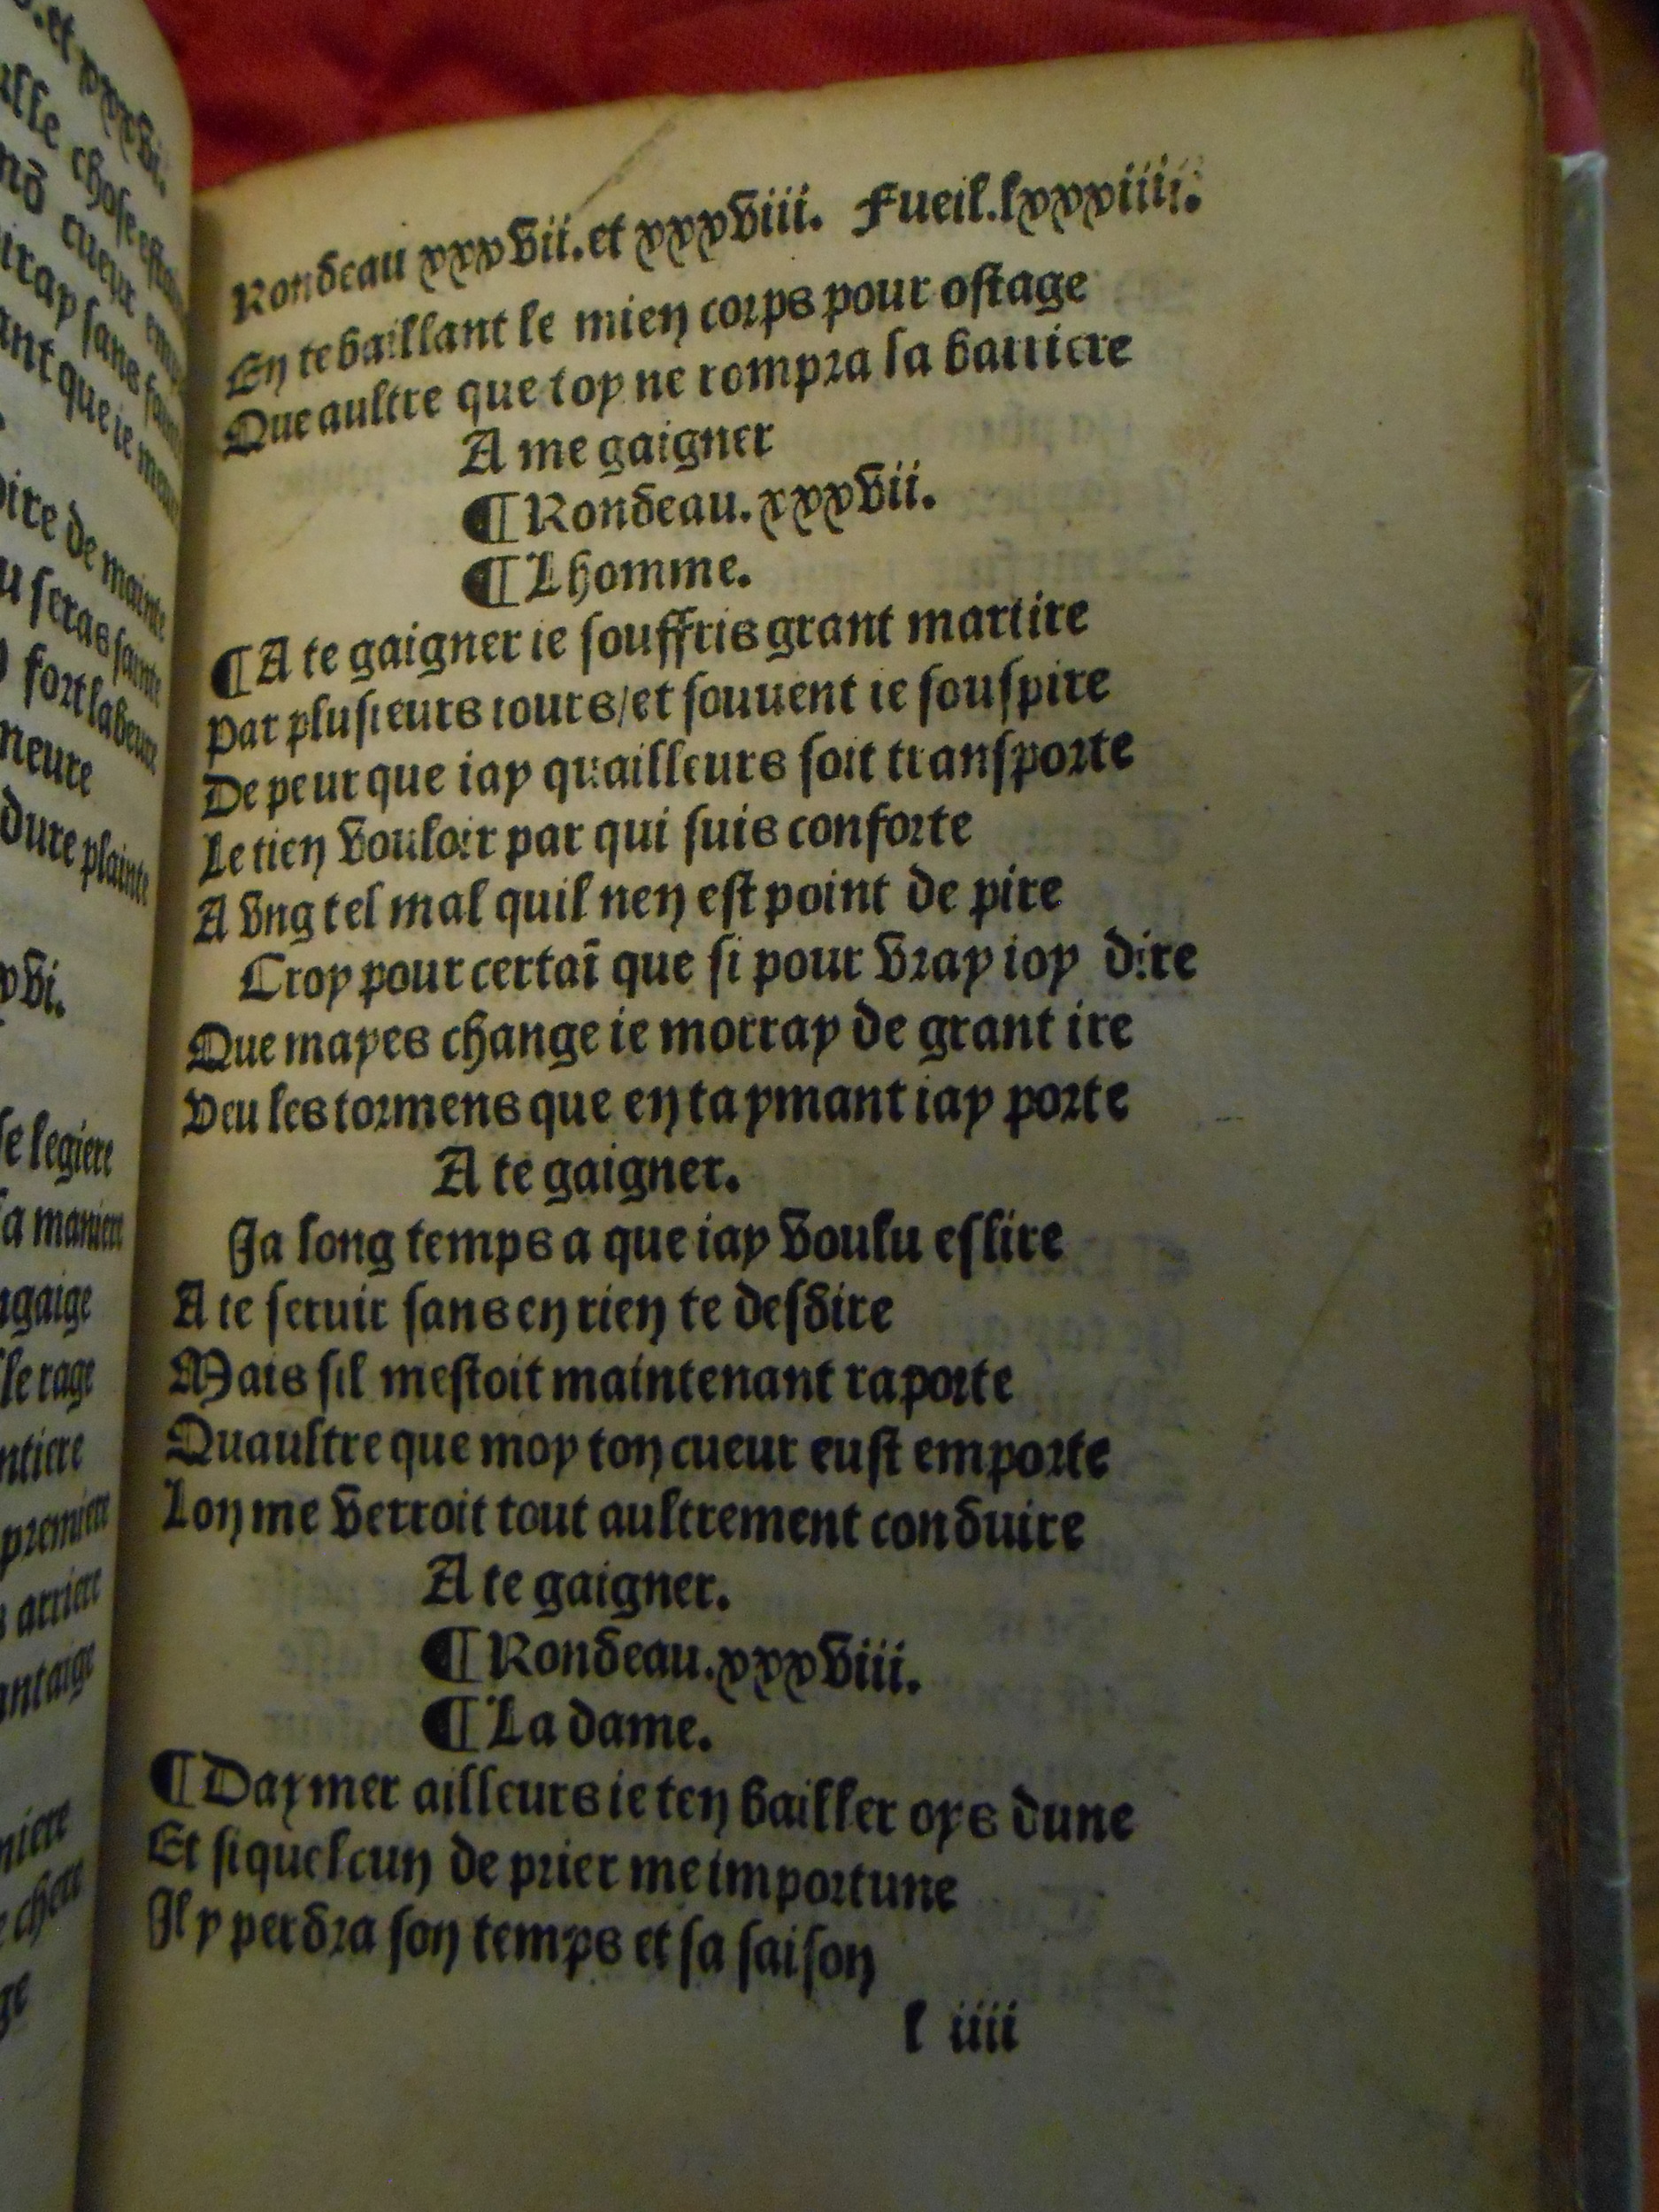 Rondeau xxxvii. et xxxviii. Fueil. lxxxiiii.
En te baillant le mien corps pour ostage
Que aultre que toy ne rompra la barriere
A me gaigner
¶ Rondeau. xxxvii.
¶ Lhomme.
¶ A te gaigner ie souffris grant martire
Par plusieurs iours/et souuent ie souspire
De peur que iay quailleurs soit transporte
Le tien vouloir par qui suis conforte
A vng tel mal quil nen est point de pire
Croy pour certaī que si pour vray ioy dire
Que mayes change ie morray de grant ire
Veu les tormens que en taymant iay porte
A te gaigner.
Ja long temps a que iay voulu eslire
A te seruir sans en rien te desdire
Mais sil mestoit maintenant raporte
Quaultre que moy ton cueur eust emporte
Lon me verroit tout aultrement conduire
A te gaigner.
¶ Rondeau. xxxviii.
¶ La dame.
¶ Daymer ailleurs ie ten bailler oys dune
Et si quelcun de prier me importune
Il y perdra son temps et sa saison
l iiii